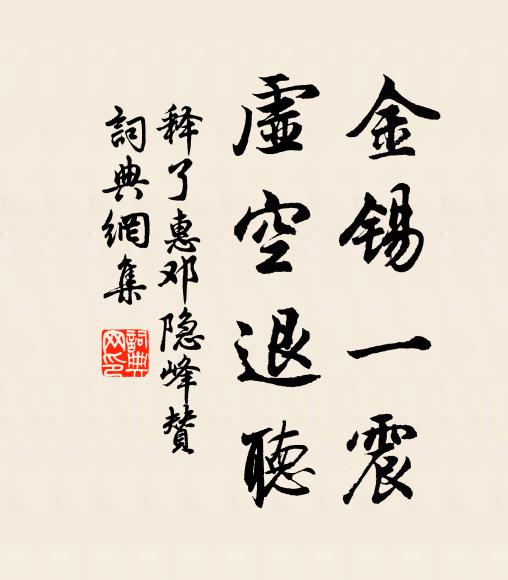 金锡一震
虚空退聽
释了惠邓隐峰赞
詞典網集
詞典网印